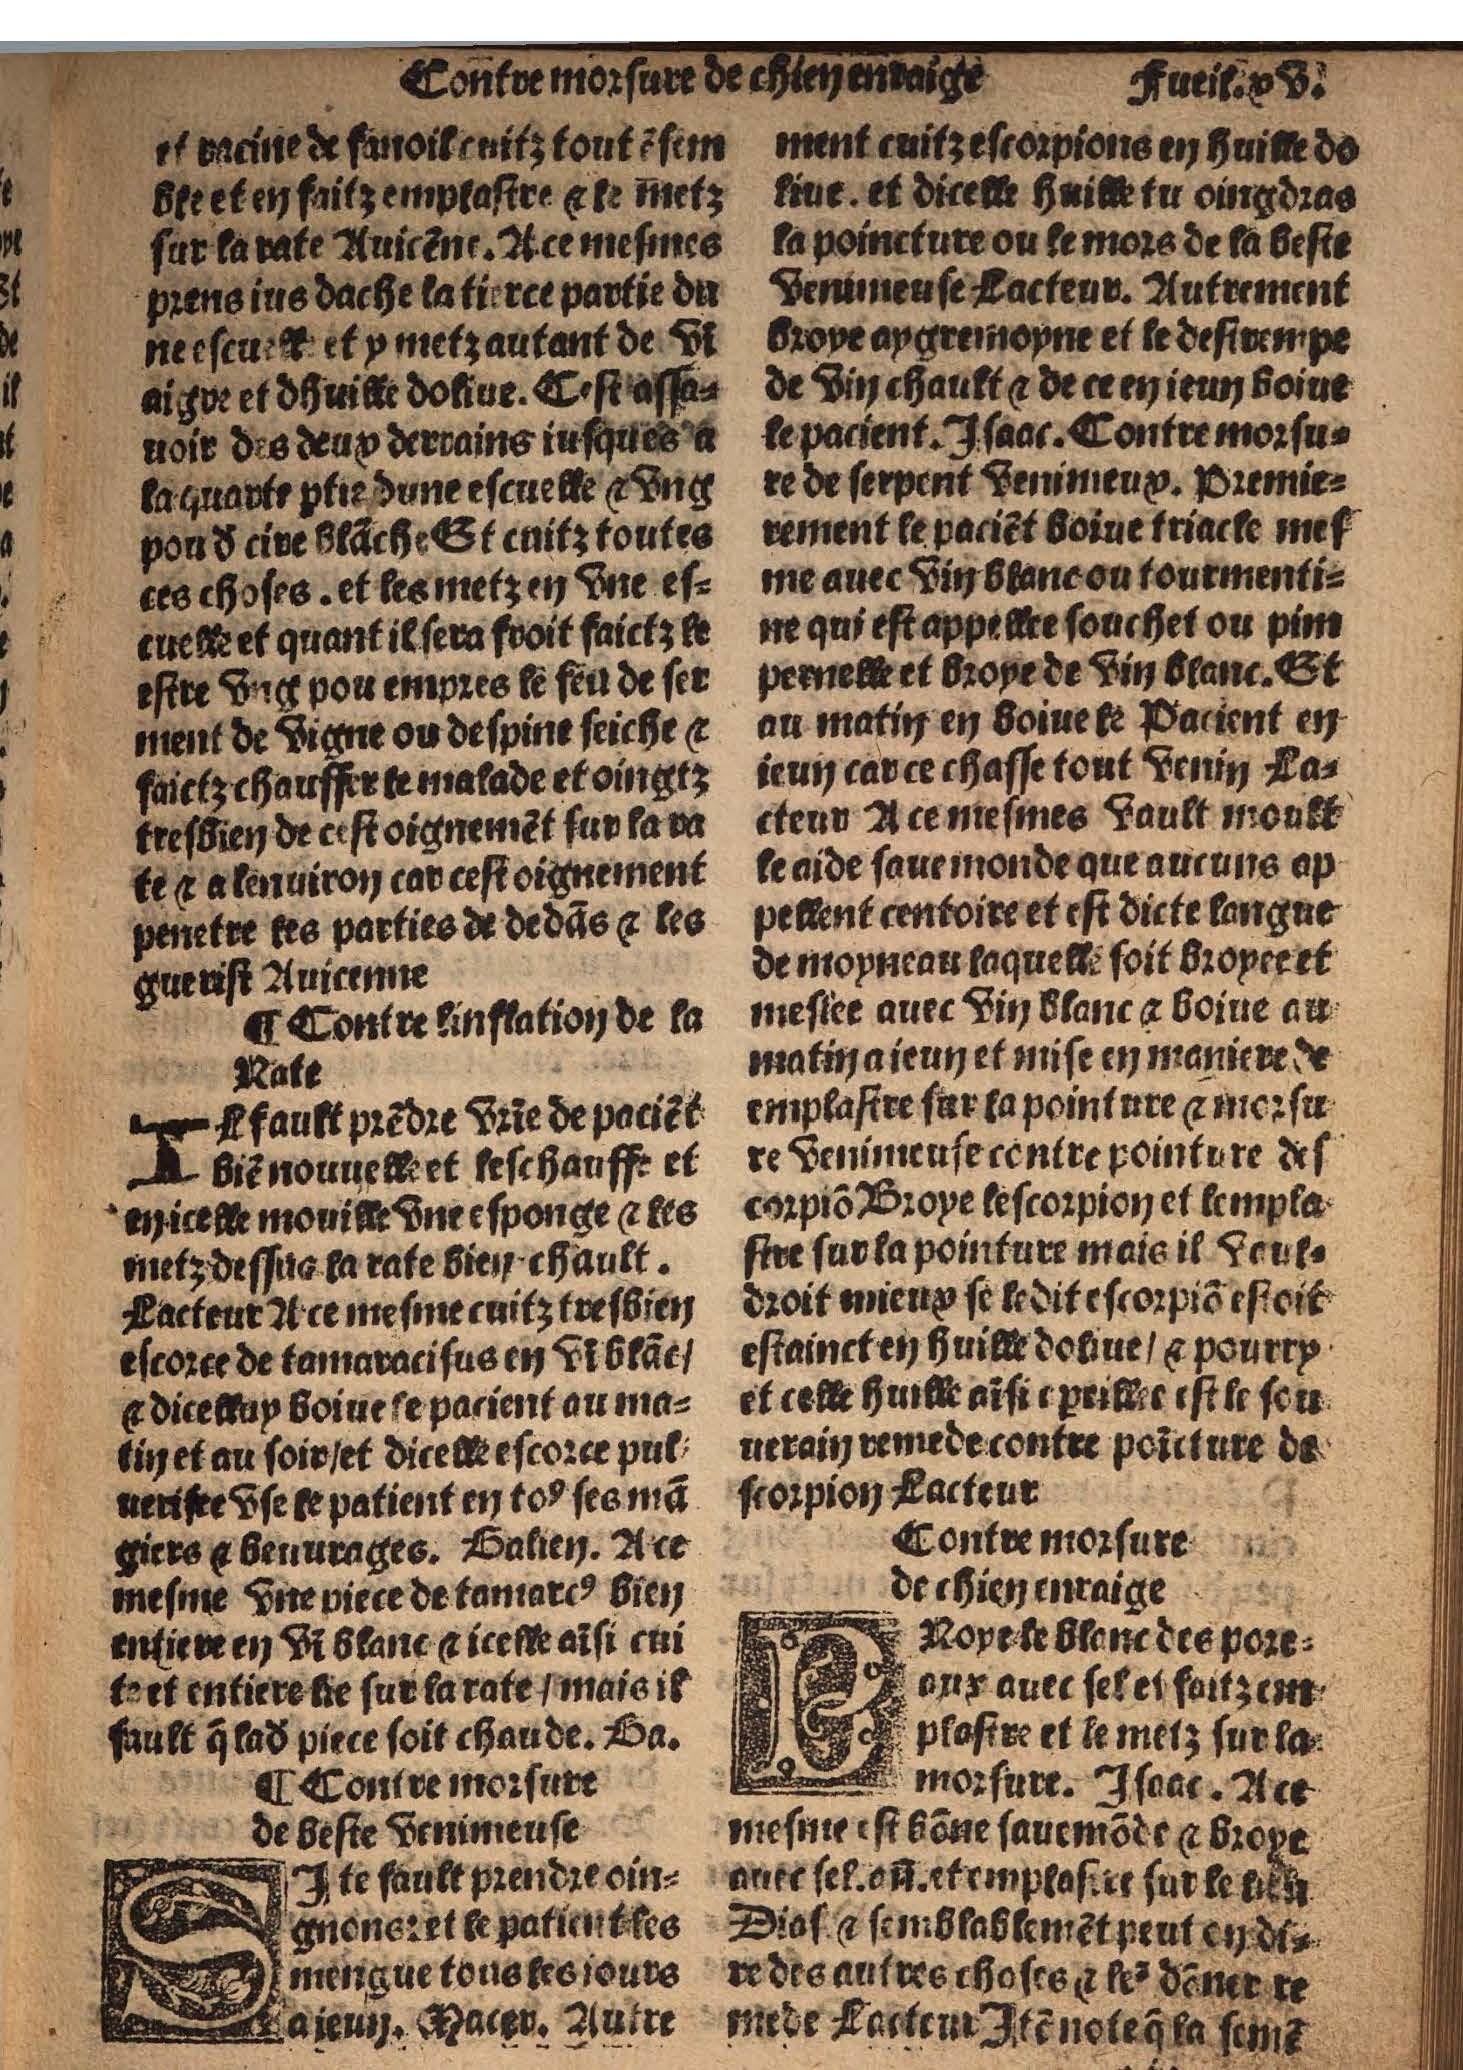 Contre morsure de chien enraige Fueil. xv.
et racine de fanoil cuitz tout ẽsem
ble et en faitz emplastre ⁊ le metz
sur la rate Auicẽne. A ce mesmes
prens ius dache la tierce partie du
ne escuelle et y metz autant de vĩ
aigre et dhuille doliue. Cest assa-
uoir des deux derrains iusques a
la quarte ptie dune escuelle ⁊ vng
pou d̃ cire blãche Et cuitz toutes
ces choses. et les metz en vne es-
cuelle et quant il sera froit faictz le
estre vng pou empres le feu de ser
ment de vigne ou despine seiche ⁊
faictz chauffer le malade et oingtz
tresbien de cest oignemẽt sur la ra
te ⁊ a lenuiron car cest oignement
penetre les parties de dedãs ⁊ les
guerist Auicenne
¶ Contre linflation de la
Rate
Il fault prẽdre vrĩe de paciẽt
biẽ nouuelle et leschauffe et
en icelle mouille vne esponge ⁊ les
metz dessus la rate bien chault.
Lacteur A ce mesme cuitz tresbien
escorce de tamaracisus en vĩ blãc/
⁊ dicelluy boiue le pacient au ma-
tin et au soir/et dicelle escorce pul-
uerisee vse le patient en toꝰ ses mã
giers ⁊ beuurages. Galien. A ce
mesme vne piece de tamarcꝰ bien
entiere en vĩ blanc ⁊ icelle aĩsi cui
te et entiere lie sur la rate / mais il
fault q̃ lad̃ piece soit chaude. Ga.
¶ Contre morsure
de beste venimeuse
SI te fault prendre oin-
gnons: et le patient les
mengue tous les iours
a ieun. Macer. Autre
ment cuitz escorpions en huille do
liue. et dicelle huille tu oingdras
la poincture ou le mors de la beste
venimeuse Lacteur. Autrement
broye aygremoyne et le destrempe
de vin chault ⁊ de ce en ieun boiue
le pacient. Isaac. Contre morsu-
re de serpent venimeux. Premie-
rement le paciẽt boiue triacle mes
me auec vin blanc ou tourmenti-
ne qui est appellee souchet ou pim
pernelle et broye de vin blanc. Et
au matin en boiue le Pacient en
ieun car ce chasse tout venin La-
cteur A ce mesmes vault moult
le aide sauemonde que aucuns ap
pellent centoire et est dicte langue
de moyneau laquelle soit broyee et
meslee auec vin blanc ⁊ boiue au
matin a ieun et mise en maniere de
emplastre sur la pointure ⁊ morsu
re venimeuse contre pointure des
corpiõ Broye lescorpion et lempla
stre sur la pointure mais il voul-
droit mieux se ledit escorpiõ estoit
estainct en huille doliue/ ⁊ pourry
et celle huille aĩsi est le sou
uerain remede contre poĩcture de
scorpion Lacteur
Contre morsure
de chien enraige
BRoye le blanc des pore-
aux auec sel et faitz em
plastre et le metz sur la
morsure. Isaac. A ce
mesme est bõne sauemõde ⁊ broye
auec sel. et emplastre sur le lieu
Dias ⁊ semblablemẽt peut en di-
re des autres choses ⁊ dõner re
mede Lacteur Itẽ note q̃ la semẽ